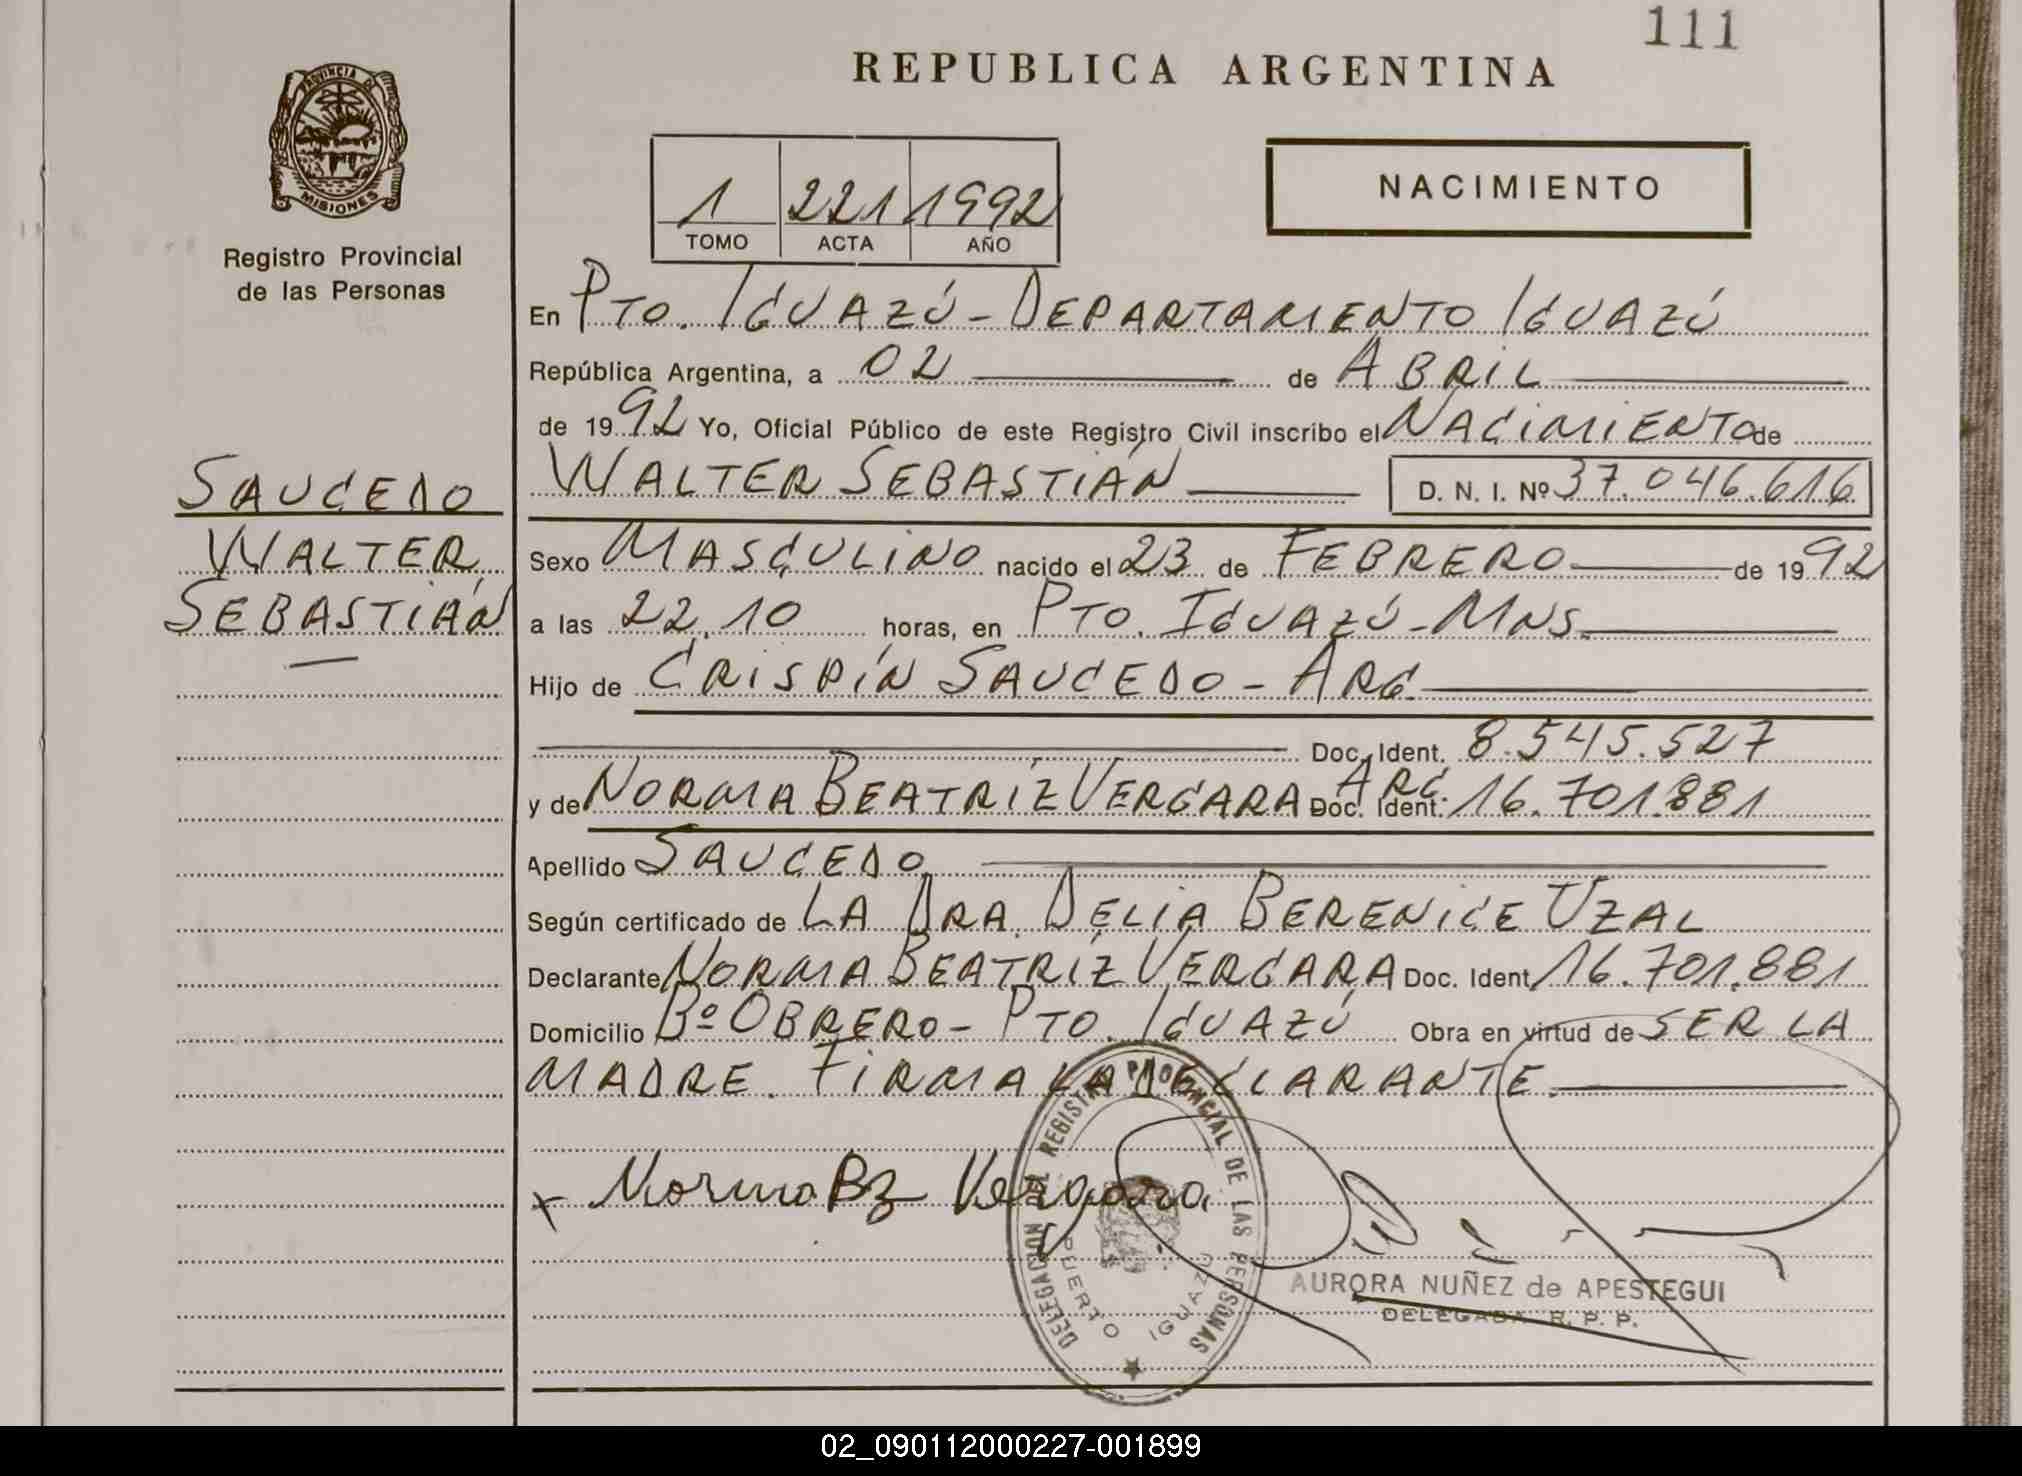 111
REPUBLICA ARGENTINA
PROVINCIA DE
MISIONES
Registro Provincial
de las Personas
1 221 1992
TOMO ACTA AÑO
NACIMIENTO
En PTO. IGUAZÚ - DEPARTAMENTO IGUAZÚ
República Argentina, a 02 de ABRIL
de 1992 Yo, Oficial Público de este Registro Civil inscribo el NACIMIENTO de
WALTER SEBASTIÁN D. N. I. Nº 37.046.616
SAUCEDO
WALTER
SEBASTIÁN
Sexo MASCULINO nacido el 23 de FEBRERO de 1992
a las 22,10 horas, en PTO. IGUAZÚ - MNS.
Hijo de CRISPÍN SAUCEDO - ARG.
Doc. Ident. 8.545.527
y de NORMA BEATRÍZ VERGARA ARG. Doc. Ident. 16.701.881
Apellido SAUCEDO
Según certificado de LA DRA. DELIA BERENICE UZAL
Declarante NORMA BEATRÍZ VERGARA Doc. Ident. 16.701.881
Domicilio Bº OBRERO - PTO. IGUAZÚ Obra en virtud de SER LA
MADRE. FIRMA LA DECLARANTE.
x Norma Bz Vergara
DELEGACION DEL REGISTRO PROVINCIAL DE LAS PERSONAS
PUERTO IGUAZÚ
AURORA NUÑEZ de APESTEGUI
DELEGADA R. P. P.
02_090112000227-001899